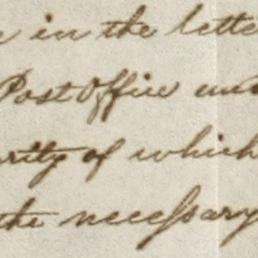 in the lette
Post Office und
rity of which
the neceſsary